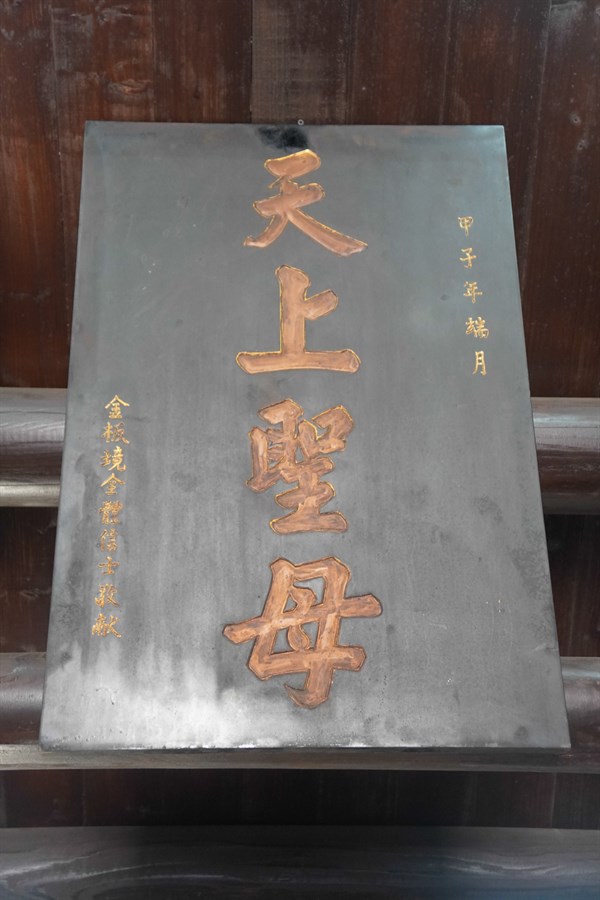 甲子年端月
天上聖母
金板境全體善士敬獻